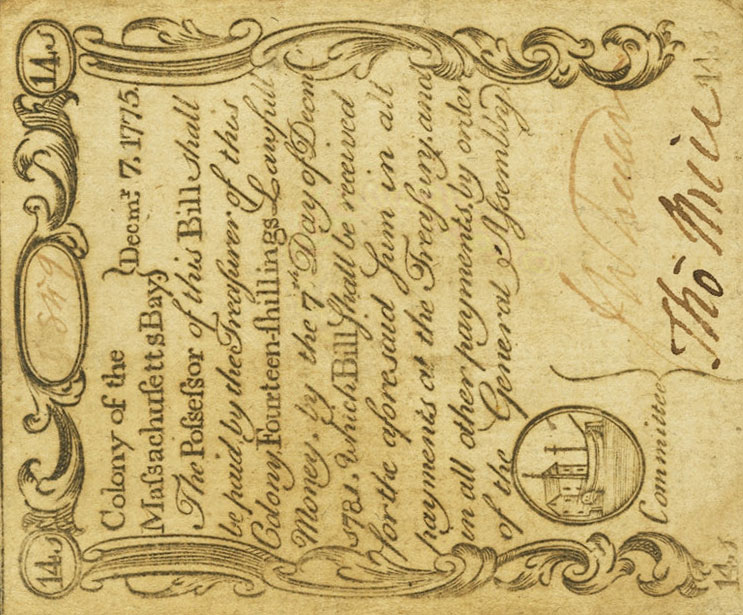 14.s 14.s
Colony of the
Maſsachuſetts Bay} {Decmr. 7. 1775.
The Poſseſsor of this Bill shall
be paid by the Treaſurer of this
Colony, Fourteen-ſhillings Lawfull
Money, by the 7th. Day of Decmr.
1781. which Bill ſhall be received
for the aforesaid ſum in all
payments at the Treaſury, and
in all other payments by order
of the General Aſsembly.
Committee
Tho
14.s 14.s